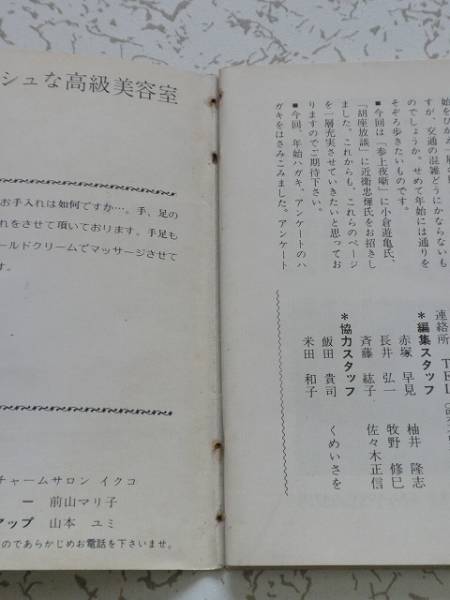 シュな高級美容室
お手入れは如何ですか…。手、足の
れをさせて頂いております。手足も
ールドクリームでマッサージさせて
す。
チャームサロン イクコ
ー 前山マリ子
アップ 山本 ユミ
のであらかじめお電話を下さいませ。
すが、交通の混雑どうにかならないも
のでしょうか。せめて年始には通りを
そぞろ歩きたいものです。
■今回は「参上夜噺」に小倉遊亀氏、
「胡座放談」に近衞忠煇氏をお招きし
ました。これからも、これらのページ
を一層充実させていきたいと思ってお
りますのでご期待下さい。
■今回、年始ハガキ、アンケートのハ
ガキをはさみこみました。アンケート
連絡所 TEL
*編集スタッフ
赤塚 早見 柚井 隆志
長井 弘一 牧野 修巳
斉藤 紘子 佐々木正信
*協力スタッフ
飯田 貴司 くめいさを
米田 和子